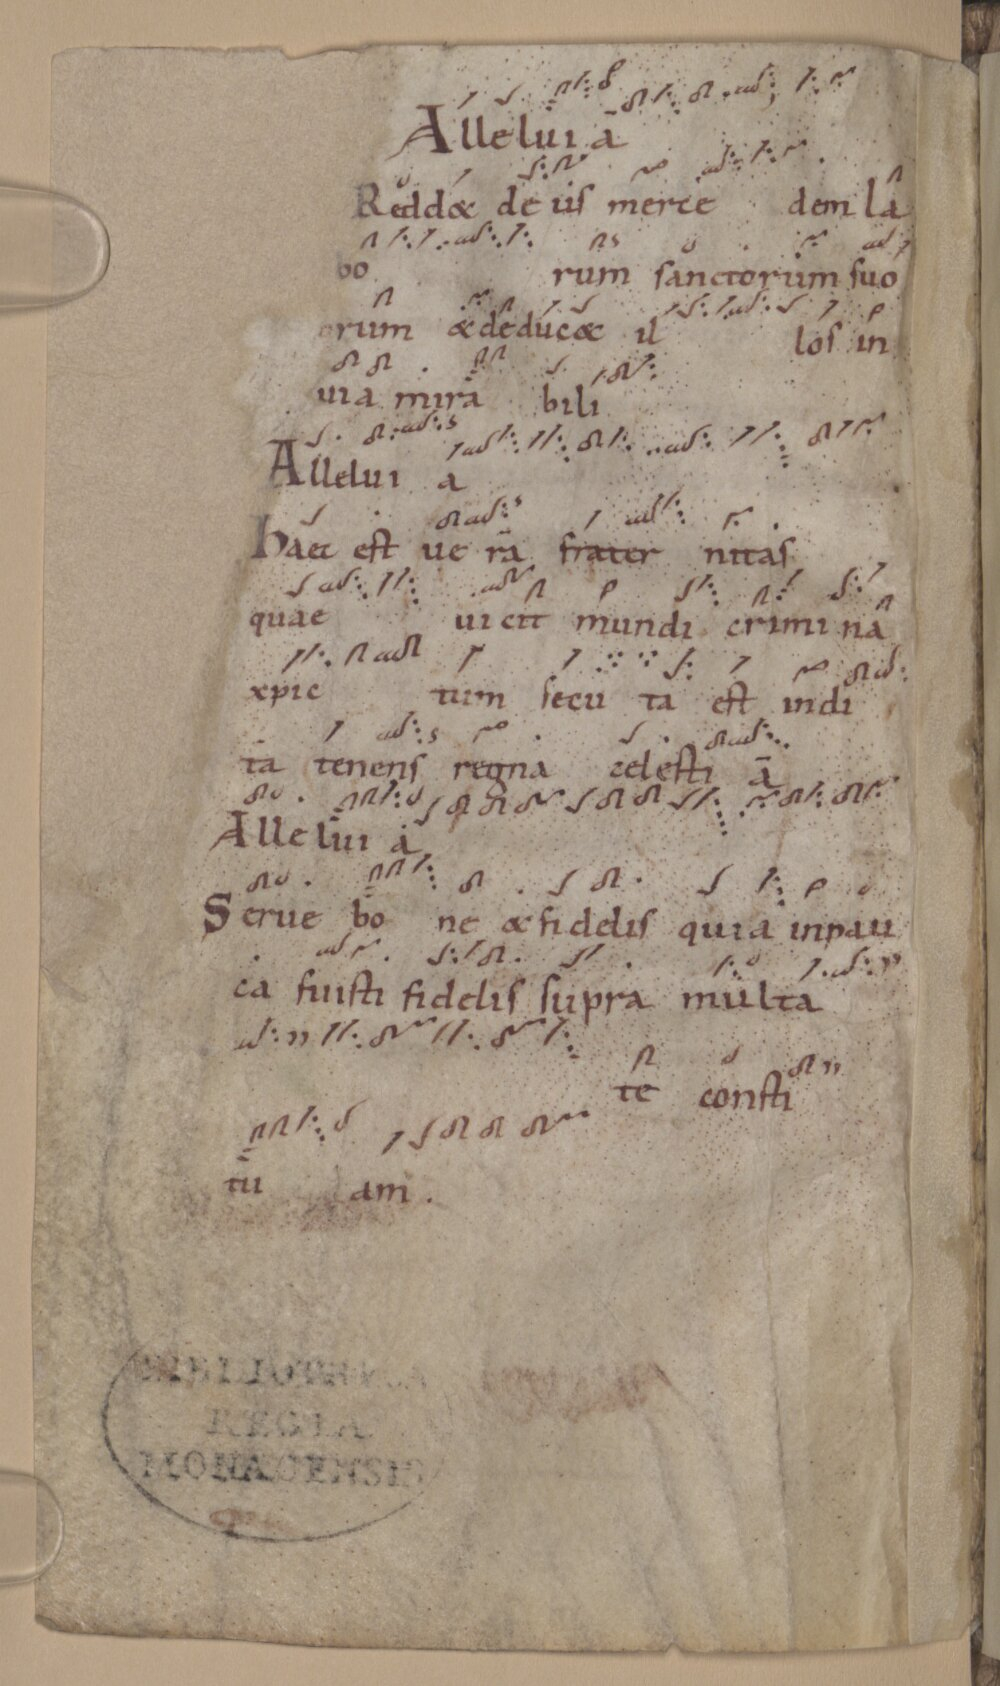 Alleluia
Reddæ deus merce dem la
bo rum sanctorum suo
rum ædeducæ il los in
uia mira bili
Allelui a
Haec est ue ra frater nitas
quae uicit mundi crimina
xpic tum secu ta est indi
ta tenens regna celesti a
Allelui a
Serue bo ne æfidelis quia inpau
ca fuisti fidelis supra multa
te consti
tu am.
BIBLIOTHECA
REGIA
MONACENSIS